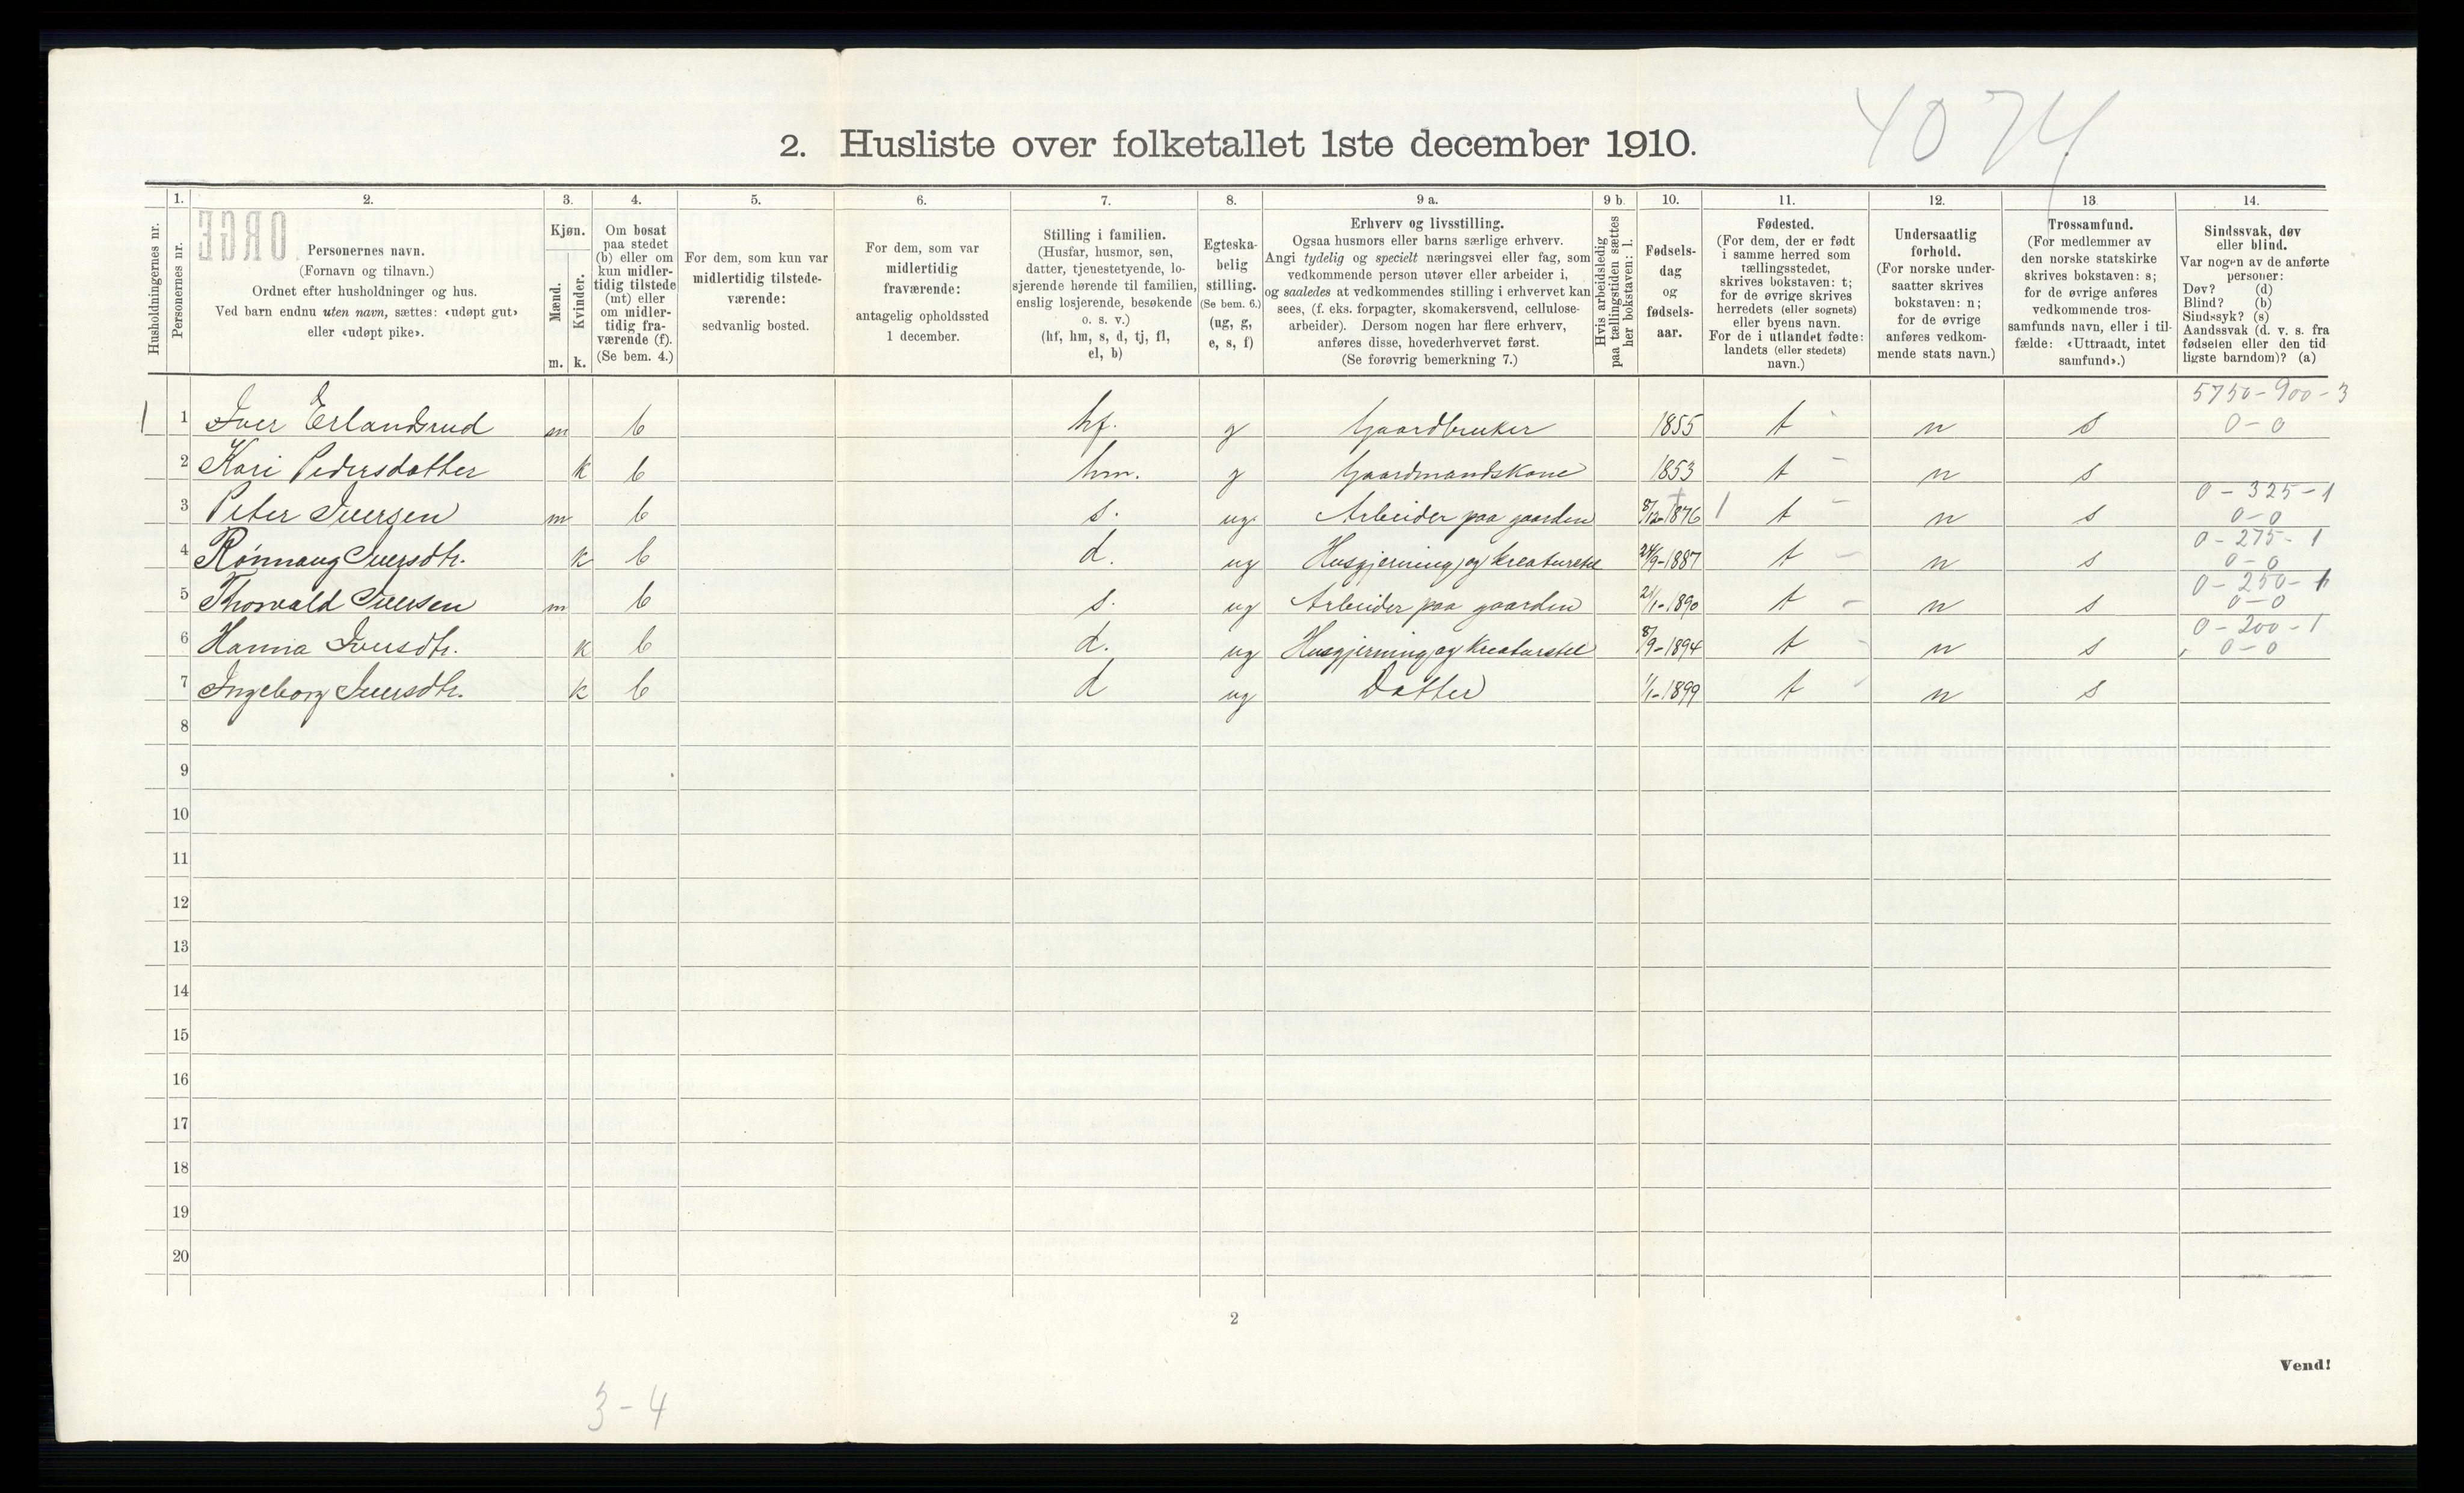 4074
2. Husliste over folketallet 1ste december 1910.
Husholdningernes nr.
1.
Personernes nr.
2.
Personernes navn.
(Fornavn og tilnavn.)
Ordnet efter husholdninger og hus.
Ved barn endnu uten navn, sættes: «udøpt gut»
eller «udøpt pike».
3.
Kjøn.
Mænd.
Kvinder.
m. k.
4.
Om bosat
paa stedet
(b) eller om
kun midler-
tidig tilstede
(mt) eller
om midler-
tidig fra-
værende (f).
(Se bem. 4.)
5.
For dem, som kun var
midlertidig tilstede-
værende:
sedvanlig bosted.
6.
For dem, som var
midlertidig
fraværende:
antagelig opholdssted
1 december.
7.
Stilling i familien.
(Husfar, husmor, søn,
datter, tjenestetyende, lo-
sjerende hørende til familien,
enslig losjerende, besøkende
o. s. v.)
(hf, hm, s, d, tj, fl,
el, b)
8.
Egteska-
belig
stilling.
(Se bem. 6.)
(ug, g,
e, s, f)
9 a.
Erhverv og livsstilling.
Ogsaa husmors eller barns særlige erhverv.
Angi tydelig og specielt næringsvei eller fag, som
vedkommende person utøver eller arbeider i,
og saaledes at vedkommendes stilling i erhvervet kan
sees, (f. eks. forpagter, skomakersvend, cellulose-
arbeider). Dersom nogen har flere erhverv,
anføres disse, hovederhvervet først.
(Se forøvrig bemerkning 7.)
9 b.
Hvis arbeidsledig
paa tællingstiden sættes
her bokstaven: l.
10.
Fødsels-
dag
og
fødsels-
aar.
11.
Fødested.
(For dem, der er født
i samme herred som
tællingsstedet,
skrives bokstaven: t;
for de øvrige skrives
herredets (eller sognets)
eller byens navn.
For de i utlandet fødte:
landets (eller stedets)
navn.)
12.
Undersaatlig
forhold.
(For norske under-
saatter skrives
bokstaven: n;
for de øvrige
anføres vedkom-
mende stats navn.)
13
Trossamfund.
(For medlemmer av
den norske statskirke
skrives bokstaven: s;
for de øvrige anføres
vedkommende tros-
samfunds navn, eller i til-
fælde: «Uttraadt, intet
samfund».)
14.
Sindssvak, døv
eller blind.
Var nogen av de anførte
personer:
Døv? (d)
Blind? (b)
Sindssyk? (s)
Aandssvak (d. v. s. fra
fødselen eller den tid
ligste barndom)? (a)
5750-900-3
1 1 Iver Erlandsrud m b hf. g Gaardbruker 1855 t n s 0-0
2 Kari Pedersdatter k b hm. g Gaardmandskone 1853 t n s
0-325-1
3 Peter Iversen m b s. ug. Arbeider paa gaarden 8/12-1876 1 t n s 0-0
0-275-1
4 Rønnaug Iversdtr. k b d. ug Husgjerning og kreaturstel 24/9-1887 t n s 0-0
0-250-1
5 Thorvald Iversen m b s. ug Arbeider paa gaarden 21/1-1890 t n s 0-0
0-200-1
6 Hanna Iversdtr. k b d. ug Husgjerning og kreaturstel 8/9-1894 t n s 0-0
7 Ingeborg Iversdtr. k b d ug Datter 1/1-1899 t n s
8
9
10
11
12
13
14
15
16
17
18
19
20
2
Vend!
3-4